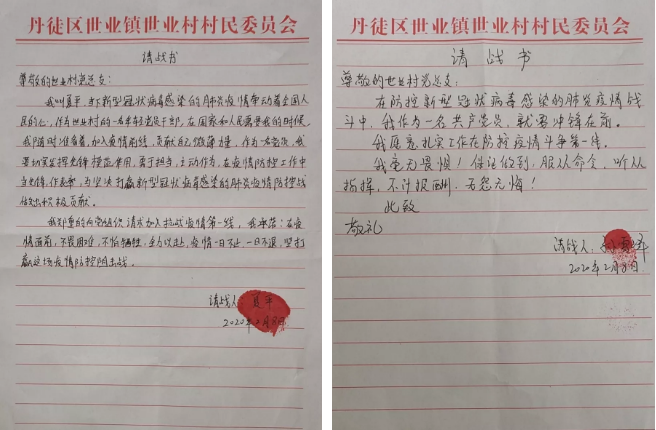 丹徒区世业镇世业村村民委员会
请战书
尊敬的世业村党总支：
我叫夏平，当下新型冠状病毒感染的肺炎疫情牵动着全国人
民的心，作为世业村的一名年轻党员干部，在国家和人民需要我的时候，
我随时准备着，加入疫情前线，贡献自己微薄力量，作为一名党员，我
要切实发挥先锋模范作用，勇于担当，主动作为，在疫情防控工作中
当先锋，作表率，为坚决打赢新型冠状病毒感染的肺炎疫情防控战
做出积极贡献。
我郑重的向党组织请求加入抗战疫情第一线，我承诺：在疫
情面前，不畏困难，不怕牺牲，全力以赴，疫情一日不止，一日不退，坚决打
赢这场疫情防控阻击战。
请战人：夏平
2020年2月8日
丹徒区世业镇世业村村民委员会
请战书
尊敬的世业村党总支：
在防控新型冠状病毒感染的肺炎疫情战
斗中，我作为一名共产党员，就要冲锋在前。
我愿意扎实工作在防控疫情斗争第一线。
我毫无畏惧！保证做到，服从命令，听从
指挥，不计报酬，无怨无悔！
此致
敬礼
请战人：
2020年2月8日